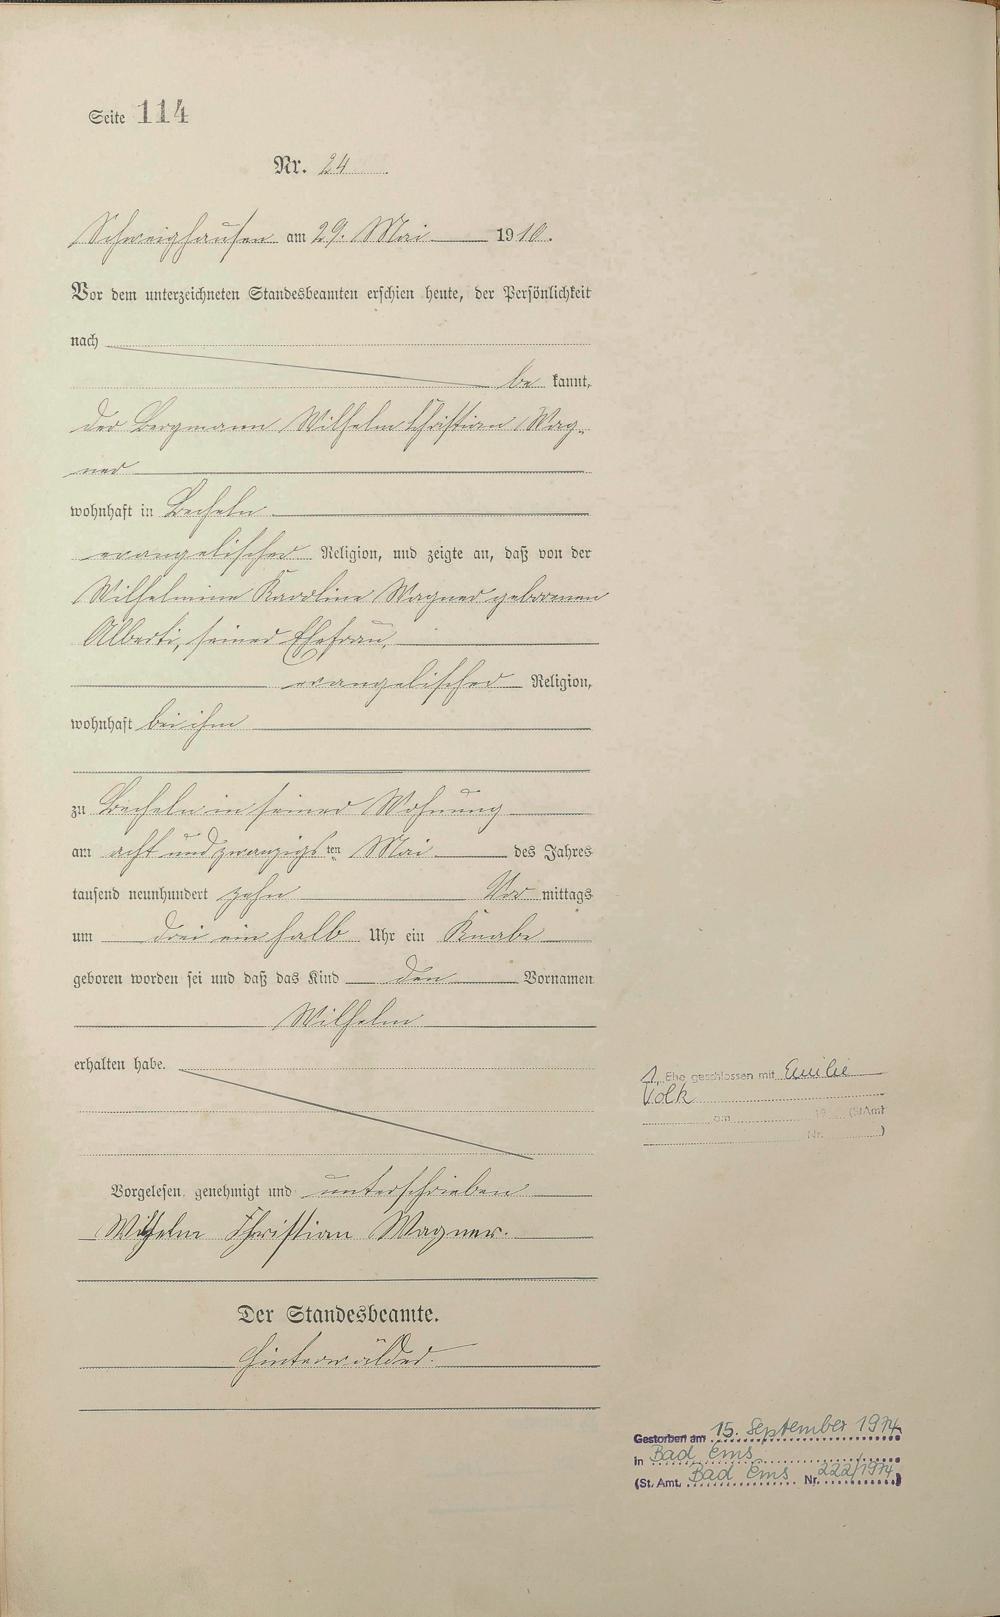 Seite 114
Nr. 24
Schweighausen am 29. Mai 1910.
Vor dem unterzeichneten Standesbeamten erschien heute, der Persönlichkeit
nach
be kannt,
der Bergmann Wilhelm Christian Wag-
ner
wohnhaft in Becheln
evangelischer Religion, und zeigte an, daß von der
Wilhelmine Karoline Wagner geborenen
Alberti, seiner Ehefrau,
evangelischer Religion,
wohnhaft bei ihm
zu Becheln in seiner Wohnung
am acht und zwanzigsten Mai des Jahres
tausend neunhundert zehn Vor mittags
um drei ein halb Uhr ein Knabe
geboren worden sei und daß das Kind den Vornamen
Wilhelm
erhalten habe.
1. Ehe geschlossen mit Emilie
Volk
am 19 (StAmt
Nr. )
Vorgelesen, genehmigt und unterschrieben
Wilhelm Christian Wagner.
Der Standesbeamte.
Hinterwälder.
Gestorben am 15. September 1974
in Bad Ems
(St. Amt. Bad Ems Nr. 222/1974)